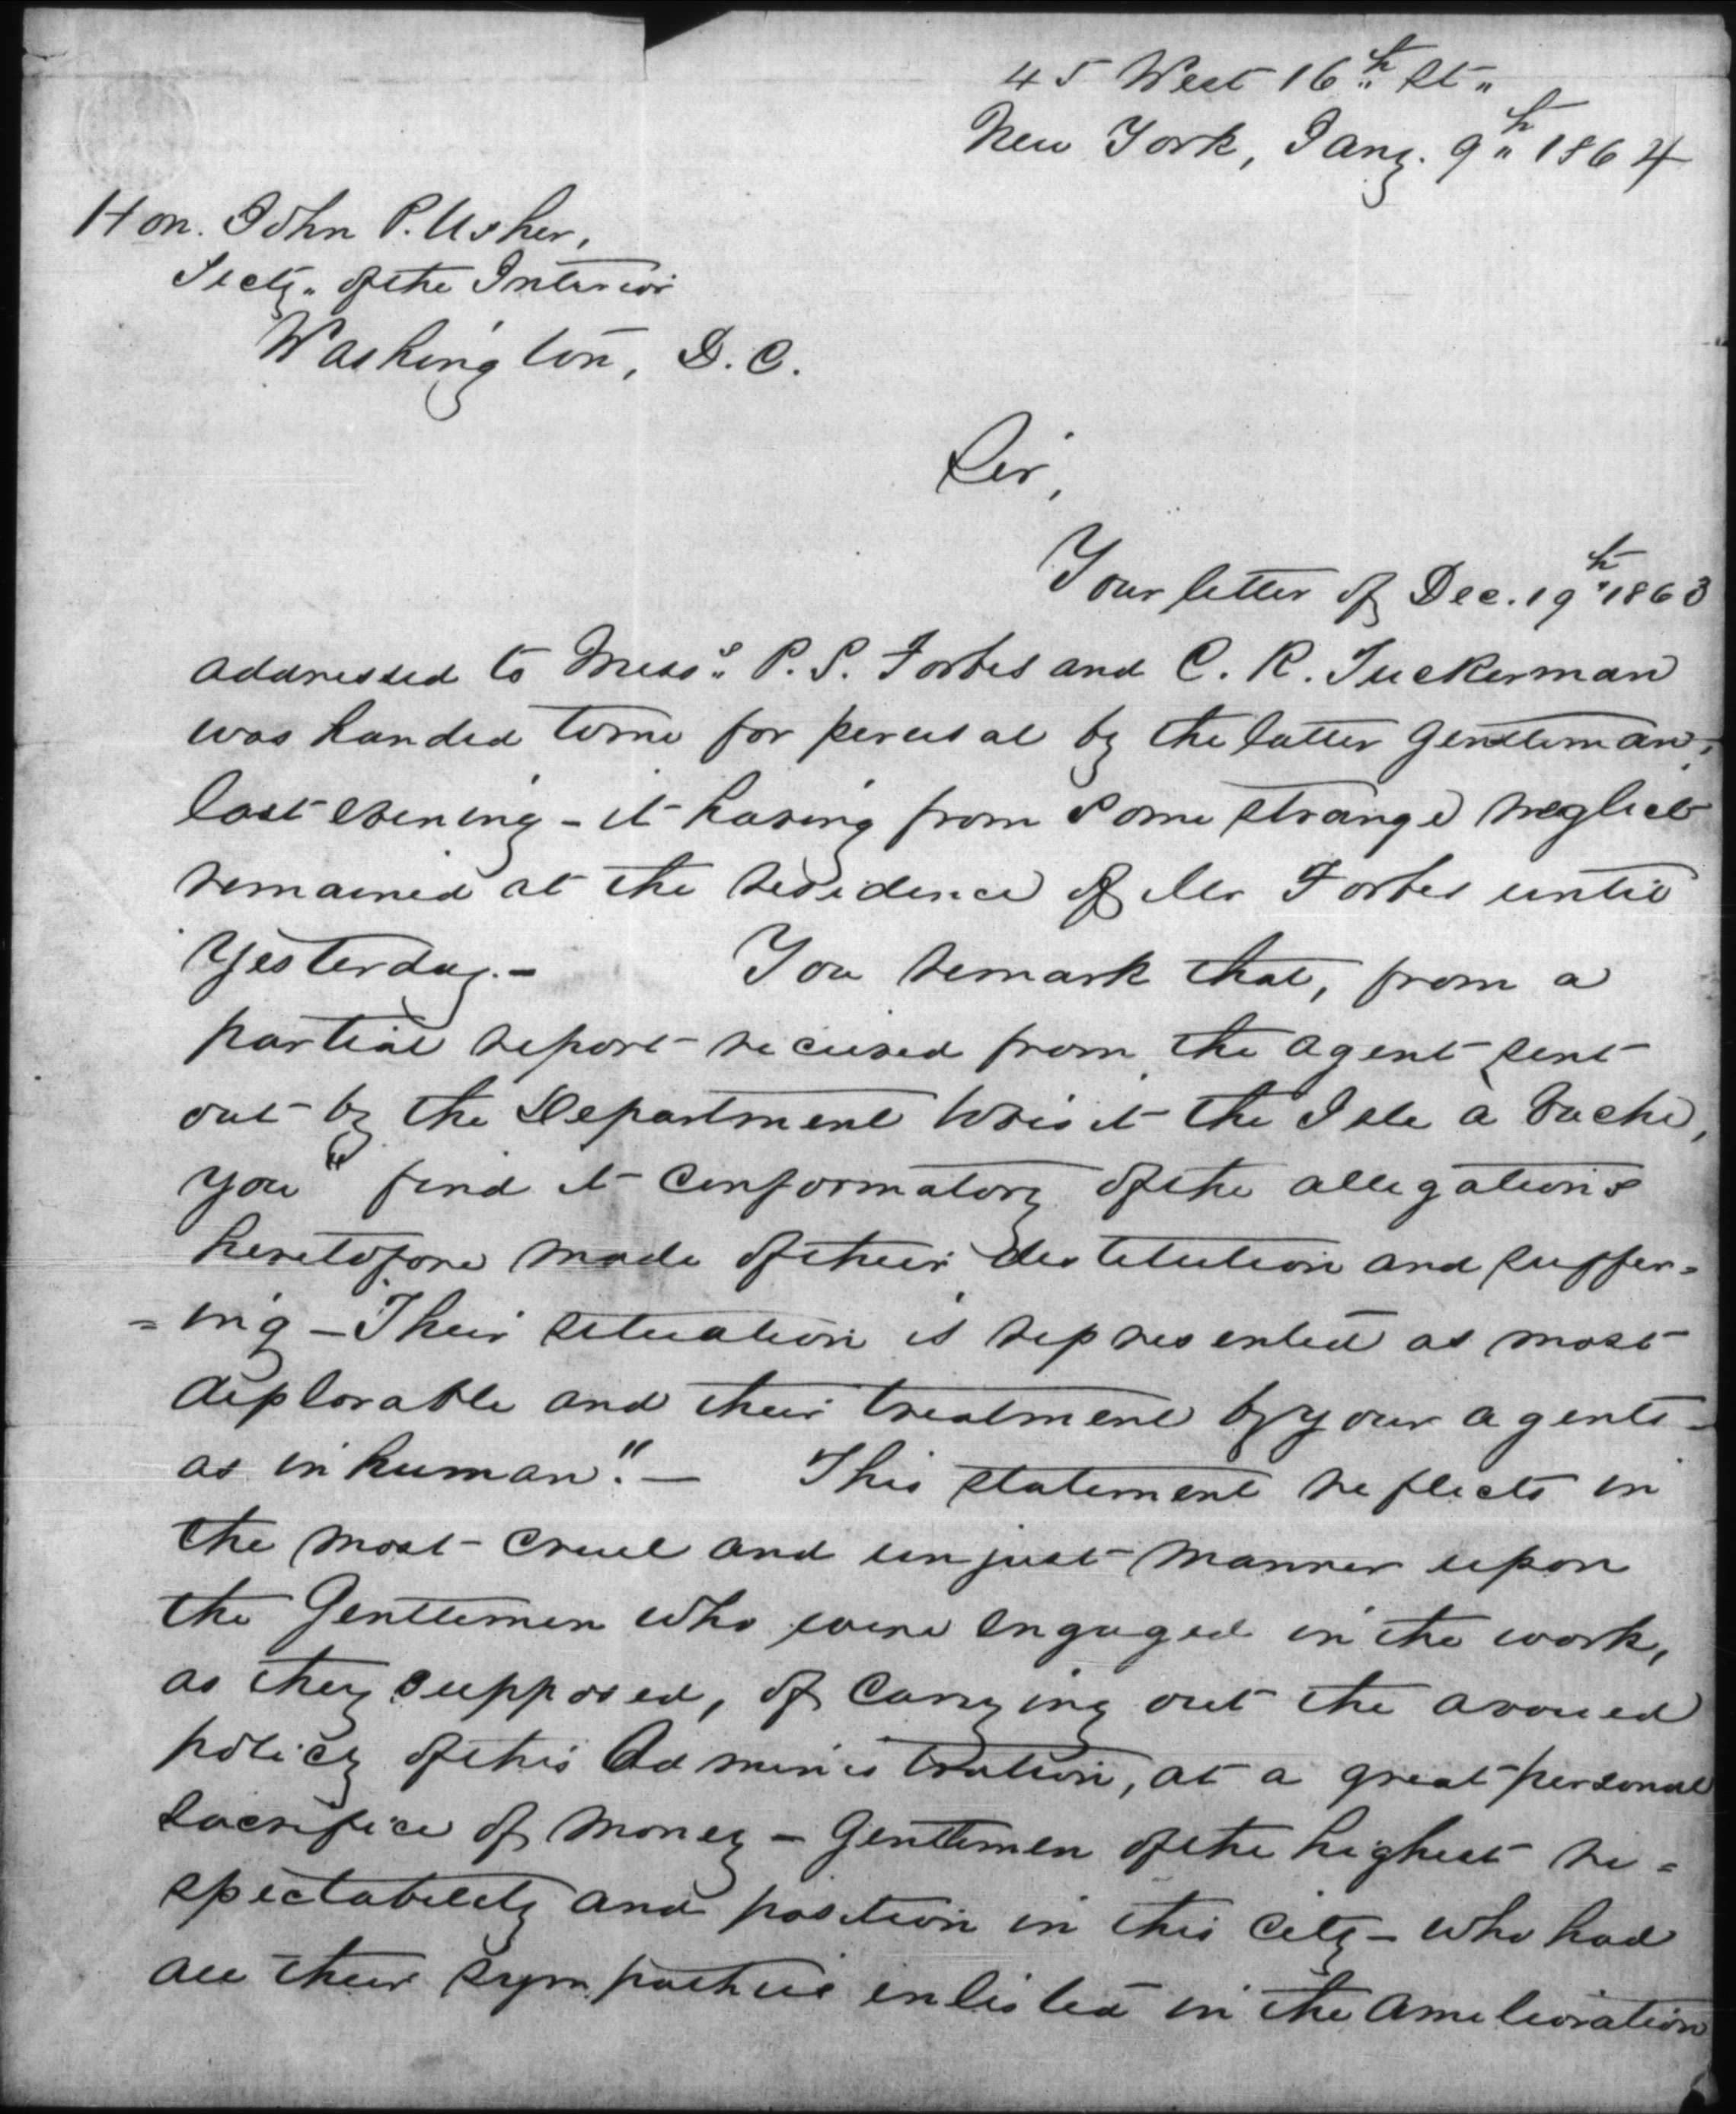 45 West 16th St.
New York, Jany. 9th 1864
Hon. John P. Usher,
Secty. of the Interior
Washington, D.C.
Sir,
Your letter of Dec. 19th 1863
addressed to Mess.s P. S. Forbes and C. K. Tuckerman
was handed to me for perusal by the latter Gentleman,
last evening - it having from some strange neglect
remained at the residence of Mr Forbes until
yesterday. - You remark that, from a
partial report received from the agent sent
out by the Department to visit the Isle à Vache,
you "find it conformatory of the allegations
heretofore made of their destitution and suffer=
=ing - Their situation is represented as most
deplorable and their treatment by your agents
as inhuman". - This statement reflects in
the most cruel and unjust manner upon
the Gentlemen who were engaged in the work,
as they supposed, of carrying out the avowed
policy of this Administration, at a great personal
sacrifice of money - Gentlemen of the highest re=
spectability and position in this city - who had
all their sympathies enlisted in the amelioration